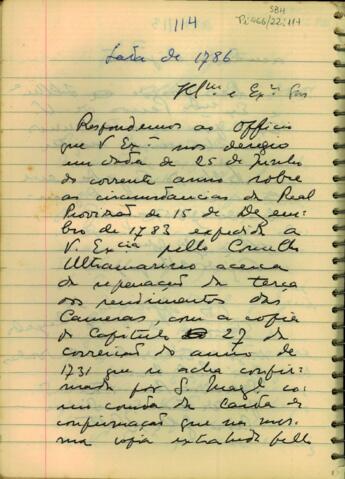 114
SBH
Pi 466/22:114
Lata de 1786
Illmº e Exmº Snr
Respondemos ao Officio
que V Exª nos derigio
em data de 25 de Junho
do corrente anno sobre
as circumstancias da Real
Provizão de 15 de Dezem-
bro de 1783 expedida a
V. Excia pello Concelho
Ultramarino acerca
da separação da terça
dos rendimentos das
Cameras, com a copia
do Capitulo 27 da
correição do anno de
1731 que se acha confir-
mada por S. Magde co-
mo consta da Carta de
confirmação que na mes-
ma copia extrahida pello